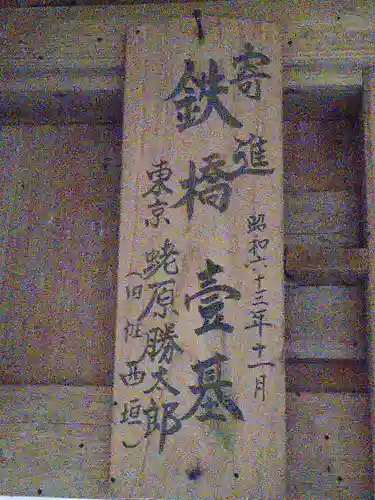 寄進
鉄橋壹基
昭和六十三年十一月
東京 蛯原勝太郎
（旧姓西垣）